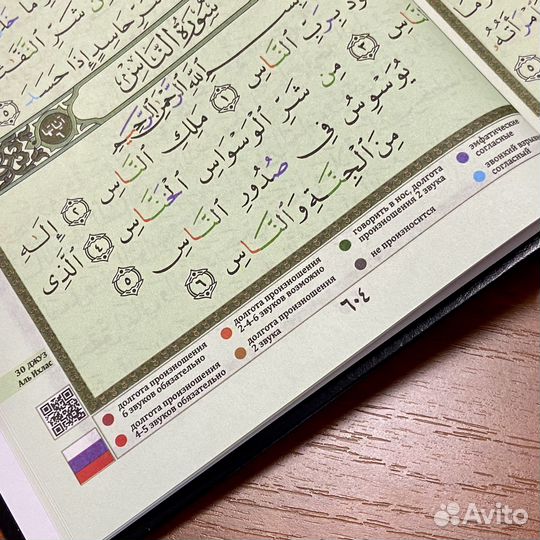 شَرِّ حَاسِدٍ إِذَا حَسَدَ ٥
سُورَةُ النَّاسِ
ٱللَّهِ ٱلرَّحْمَٰنِ ٱلرَّحِيمِ
بِرَبِّ ٱلنَّاسِ ١ مَلِكِ ٱلنَّاسِ ٢ إِلَٰهِ
ٱلنَّاسِ ٣ مِن شَرِّ ٱلْوَسْوَاسِ ٱلْخَنَّاسِ ٤ ٱلَّذِى
يُوَسْوِسُ فِى صُدُورِ ٱلنَّاسِ ٥
مِنَ ٱلْجِنَّةِ وَٱلنَّاسِ ٦
٦٠٤
30 ДЖУЗ
Аль Ихлас
долгота произношения
6 звуков обязательно
долгота произношения
4-5 звуков обязательно
долгота произношения
2-4-6 звуков возможно
долгота произношения
2 звука
говорить в нос, долгота
произношения 2 звука
не произносится
эмфатические
согласные
звонкий взрыв
согласный
Avito